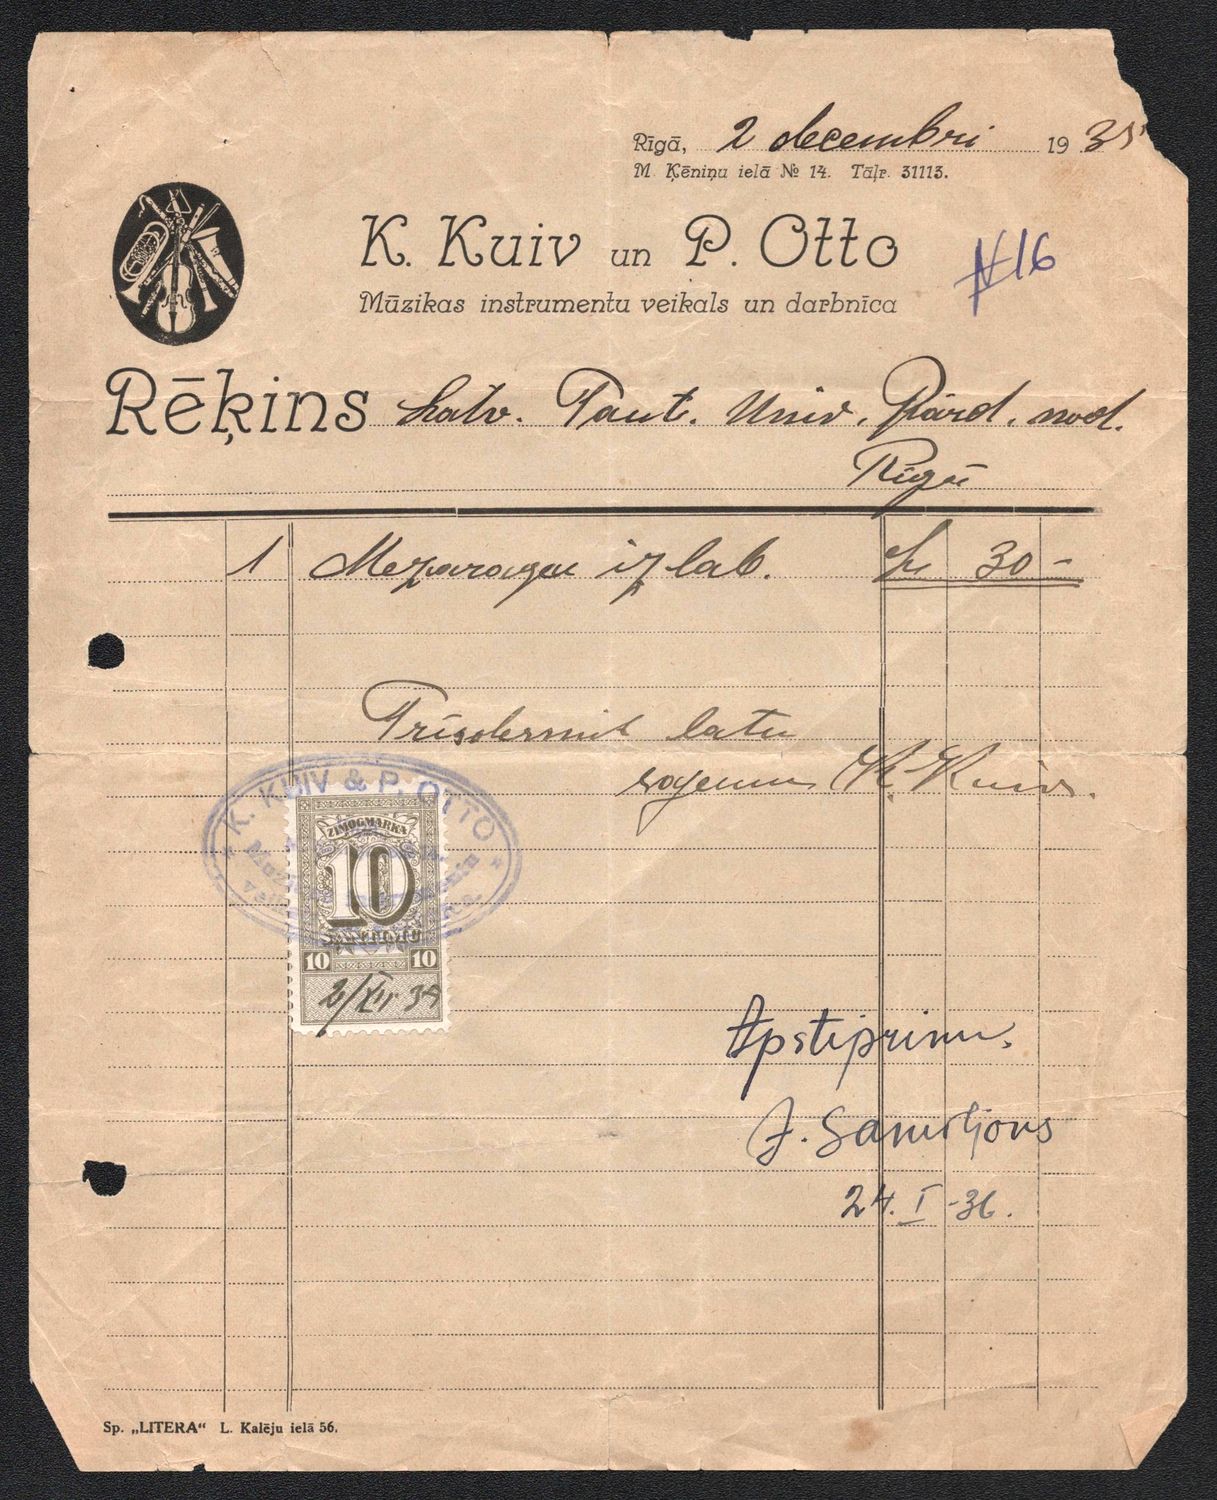 Rīgā, 2 decembri 1935
M. Ķēniņu ielā № 14. Tāļr. 31113.
K. Kuiv un P. Otto
N16
Mūzikas instrumentu veikals un darbnīca
Rēķins Latv. Taut. Univ. Pārd. nod.
Rīgā
1 Mežaragu izlab. Ls 30-
Trīsdesmit latu
K. Kuiv.
K. KUIV & P. OTTO
ZĪMOGMARKA
10
SANTIMU
10 10
2/XII 35
Apstiprinu.
24. I -36.
Sp. „LITERA“ L. Kalēju ielā 56.